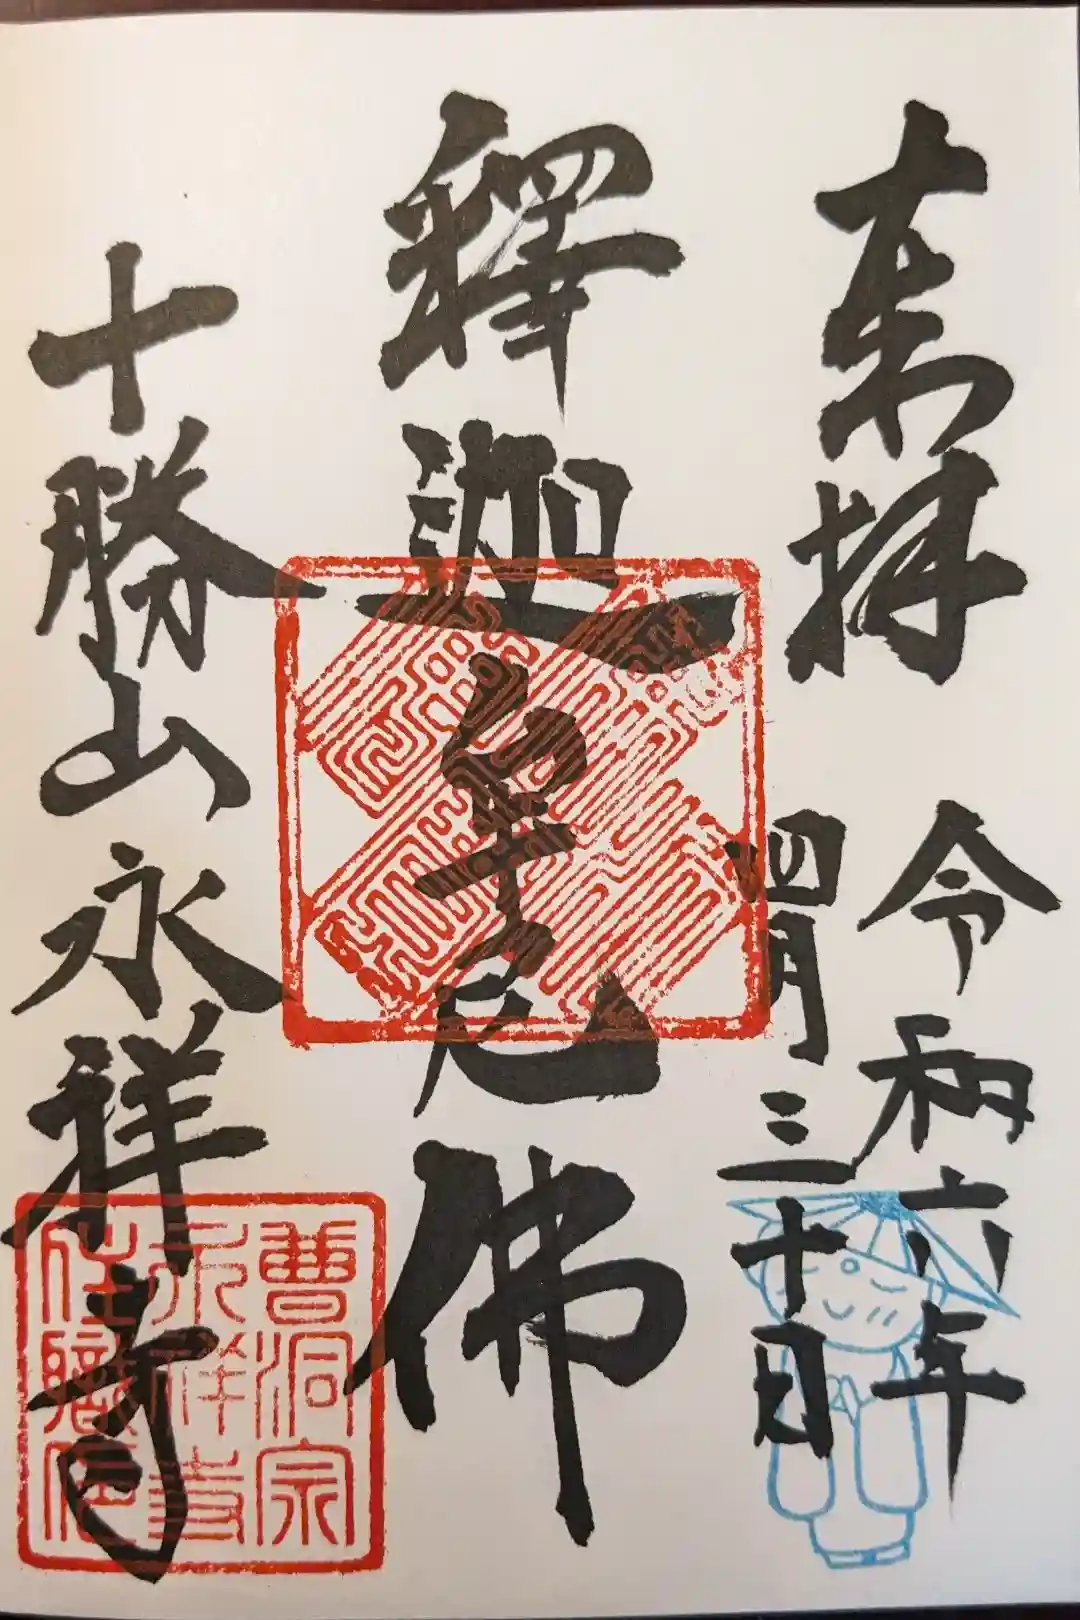 来拝
令和六年
四月三十日
釋迦牟尼佛
十勝山永祥寺
曹洞宗
永祥寺
住職印